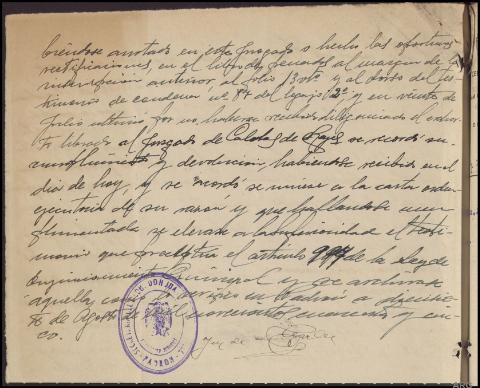 biendose anotado en este Juzgado o hecho las oportunas
rectificaciones, en el libro de penados al margen de la
inscripcion anterior, al folio 130 vto y al dorso del tes-
timonio de condena nº 84 del legajo 13º y en veinte de
Julio ultimo por no haberse recibido diligenciado el exhor-
to librado al Juzgado de Caldas de Reyes se recordó su
cumplimiento y devolucion, habiendose recibido en el
dia de hoy, y se acordó se uniese a la carta orden
ejecutoria de su razón y que hallandose cum-
plimentada se elevase a la superioridad el testi-
monio que preceptua el articulo 997 de la Ley de
Enjuiciamiento Criminal y se archivara
aquella
to de Agosto de mil novecientos cuarenta y cin-
co.